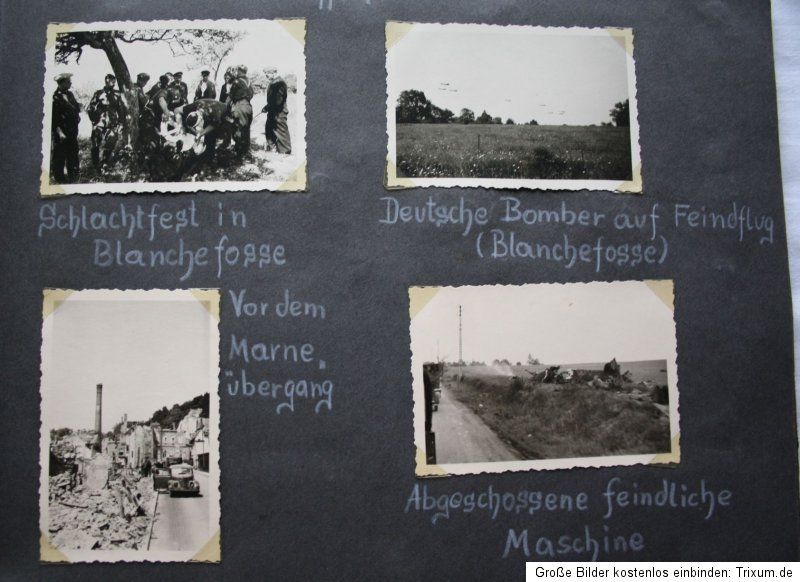 Schlachtfest in
Blanchefosse
Deutsche Bomber auf Feindflug
(Blanchefosse)
Vor dem
Marne„
übergang
Abgeschossene feindliche
Maschine
Große Bilder kostenlos einbinden: Trixum.de